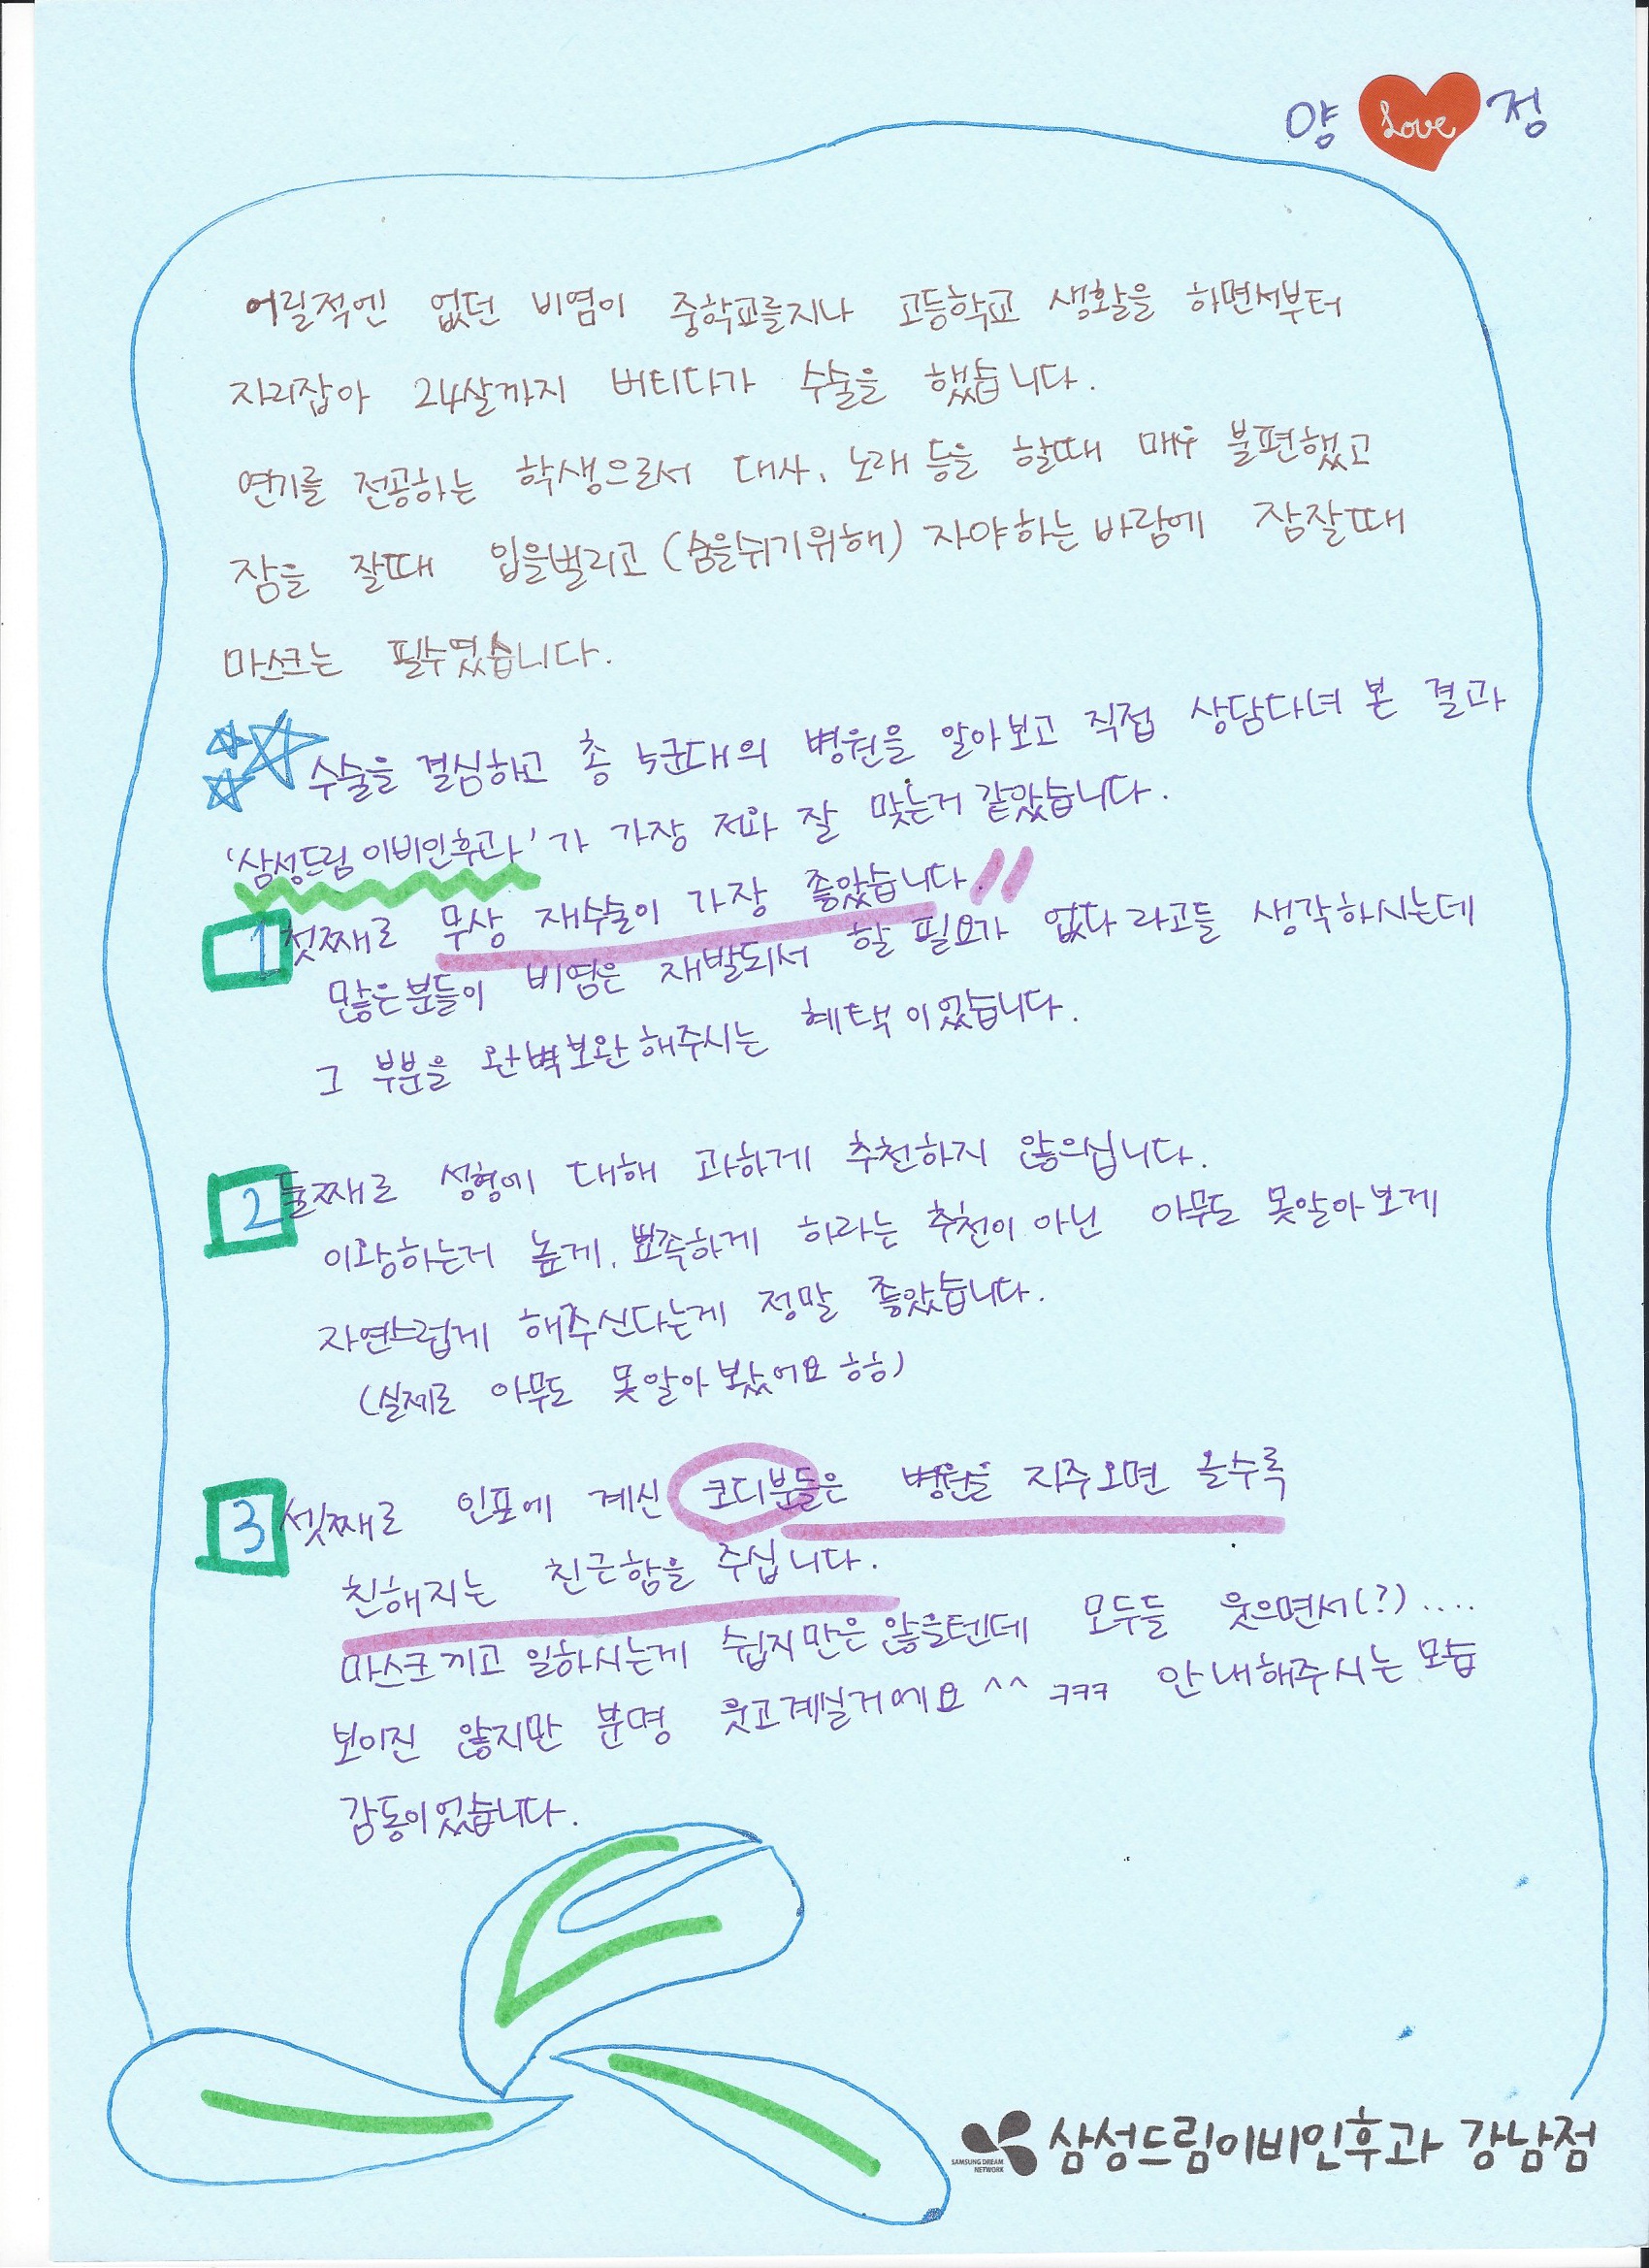 양 Love 정
어릴적엔 없던 비염이 중학교를지나 고등학교 생활을 하면서부터
자리잡아 24살까지 버티다가 수술을 했습니다.
연기를 전공하는 학생으로서 대사, 노래 등을 할때 매우 불편했고
잠을 잘때 입을벌리고 (숨을쉬기위해) 자야하는바람에 잠잘때
마스크는 필수였습니다.
수술을 결심하고 총 5군데의 병원을 알아보고 직접 상담다녀 본 결과
'삼성드림이비인후과'가 가장 저와 잘 맞는거 같았습니다.
1 첫째로 무상 재수술이 가장 좋았습니다.
많은분들이 비염은 재발되서 할 필요가 없다 라고들 생각하시는데
그 부분을 완벽보완해주시는 혜택이었습니다.
2 둘째로 성형에 대해 과하게 추천하지 않으십니다.
이왕하는거 높게, 뾰족하게 하라는 추천이 아닌 아무도 못알아보게
자연스럽게 해주신다는게 정말 좋았습니다.
(실제로 아무도 못알아봤어요 ㅎㅎ)
3 셋째로 인포에 계신 코디분들은 병원을 자주오면 올수록
친해지는 친근함을 주십니다.
마스크끼고 일하시는게 쉽지만은않을텐데 모두들 웃으면서(?)....
보이진 않지만 분명 웃고계실거에요^^ ㅋㅋㅋ 안내해주시는모습
감동이었습니다.
SAMSUNG DREAM
NETWORK
삼성드림이비인후과 강남점